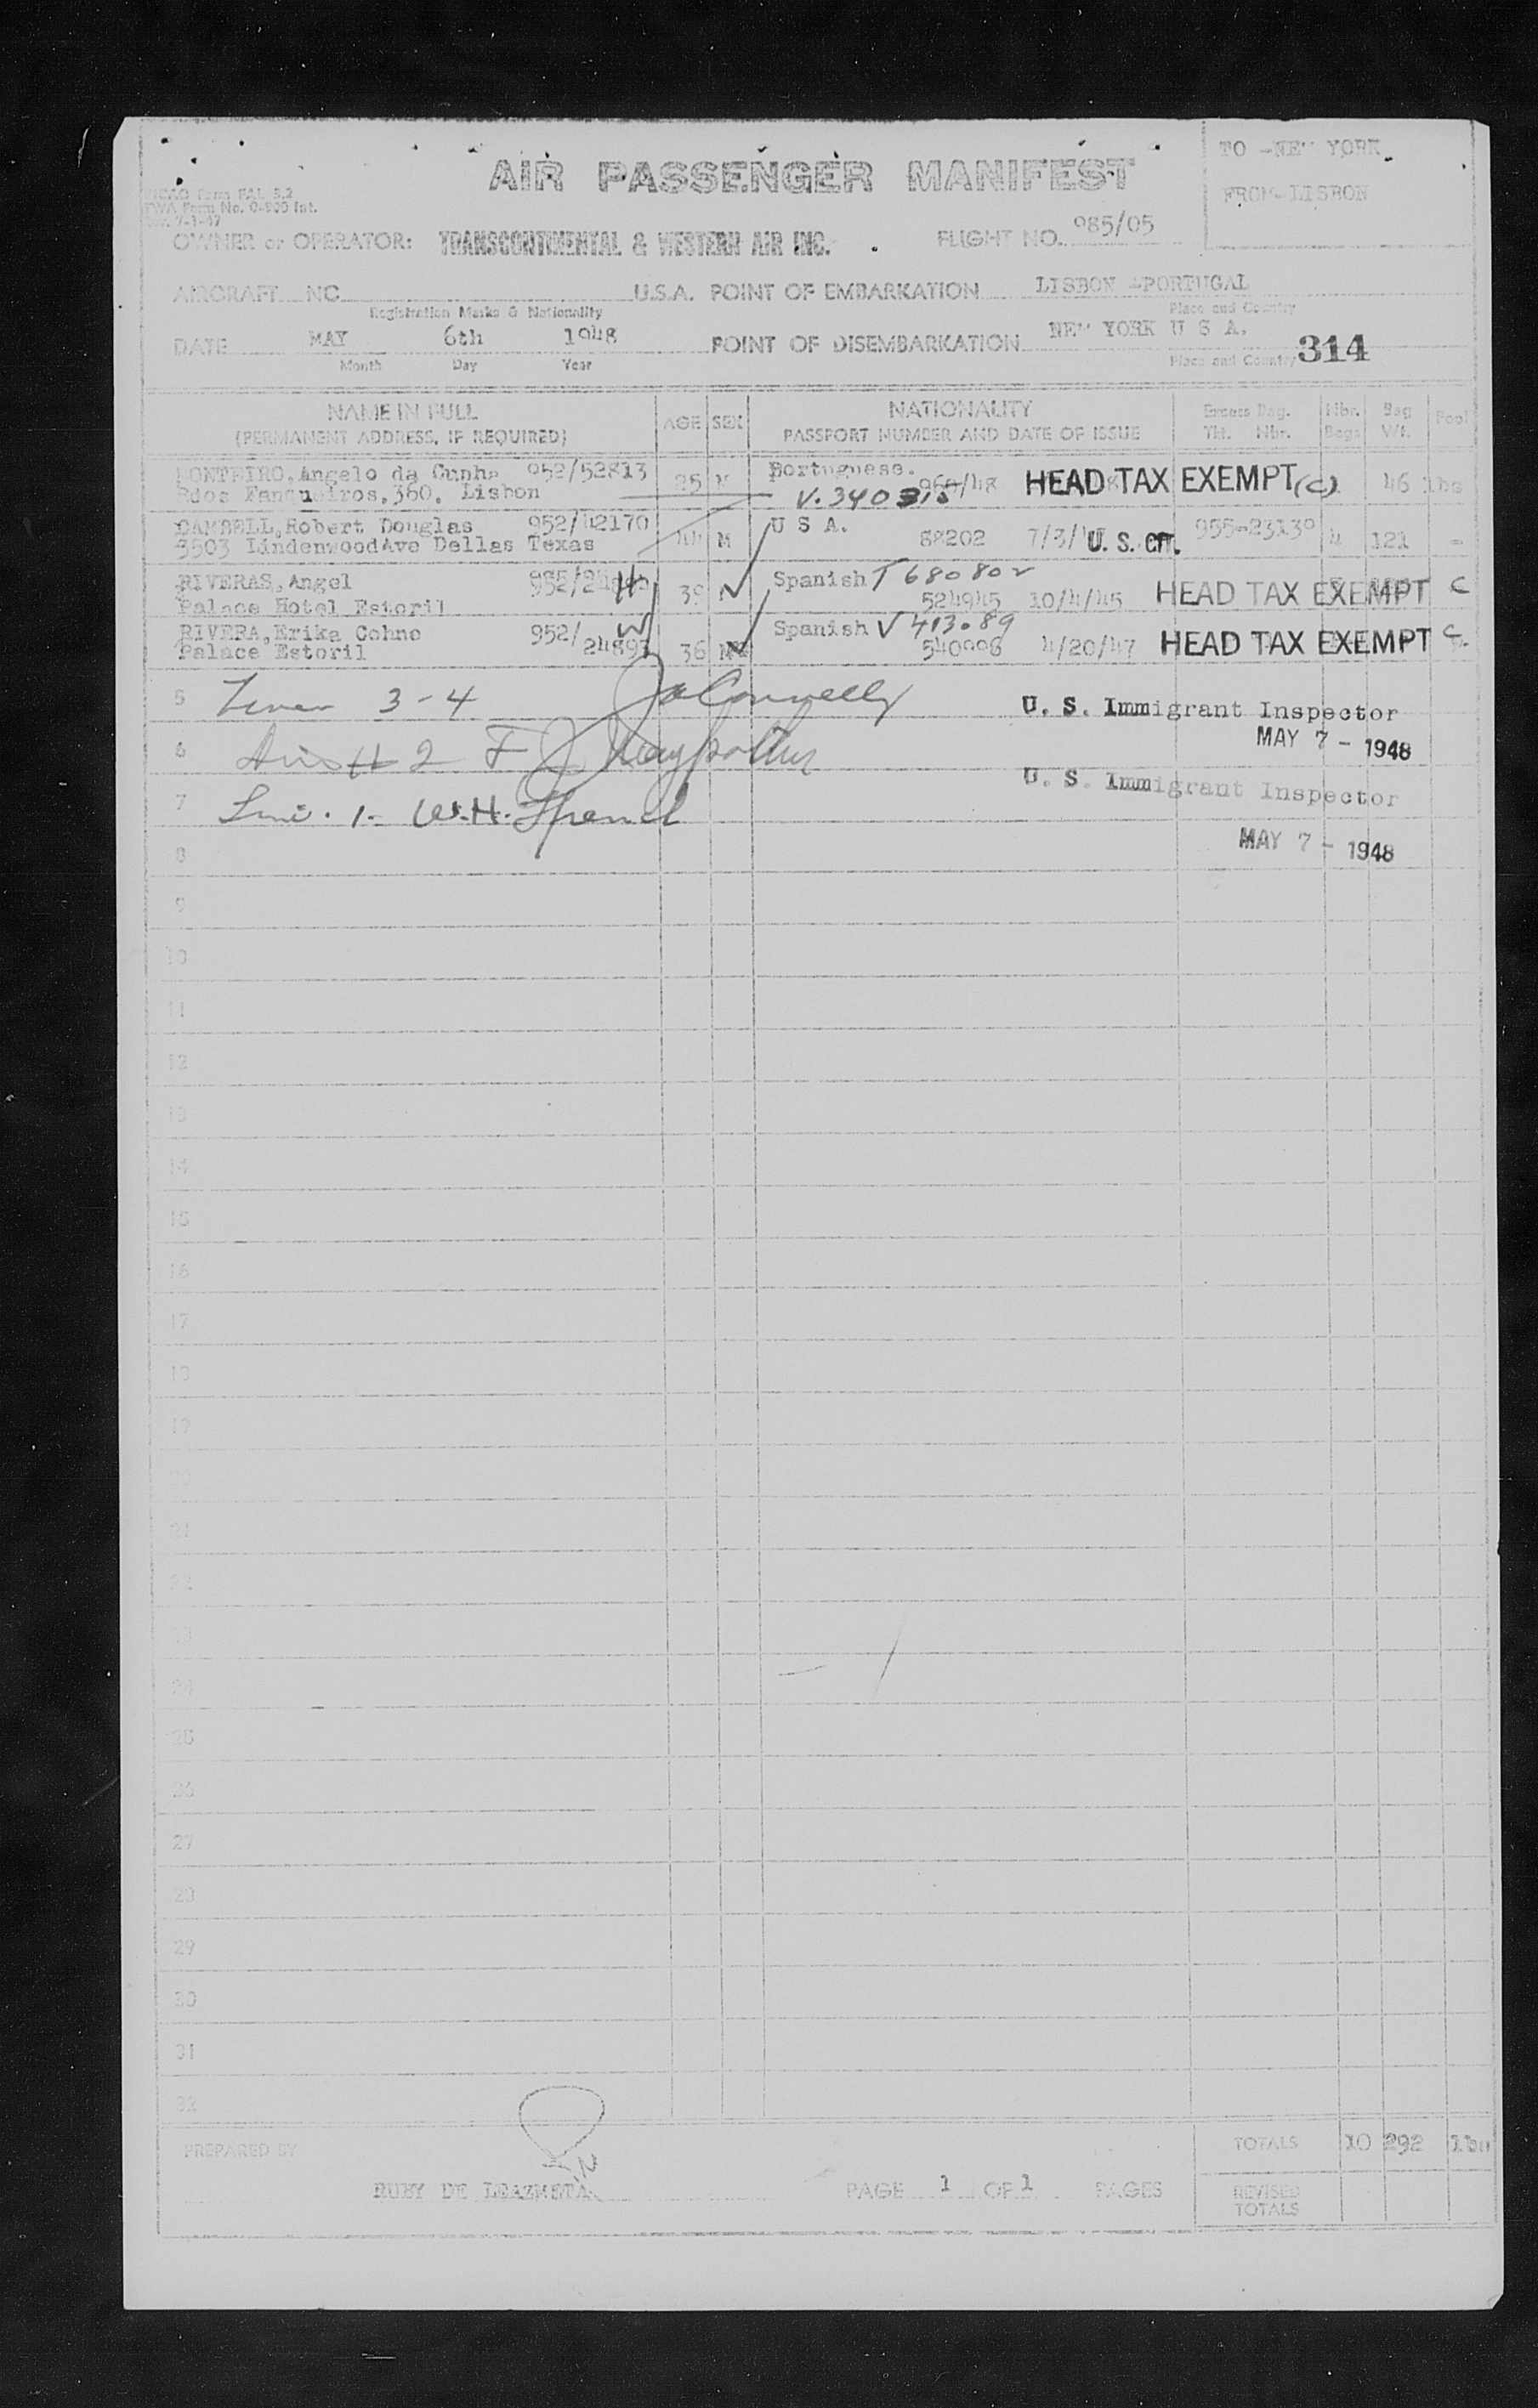 TO -NEW YORK
AIR PASSENGER MANIFEST
ICAO Form FAL 3.2
TWA Form No. 0-805 Int.
7-1-47
FROM-LISBON
OWNER or OPERATOR: TRANSCONTINENTAL & WESTERN AIR INC. FLIGHT NO. 985/05
AIRCRAFT NC U.S.A. POINT OF EMBARKATION LISBON -PORTUGAL
Registration Marks & Nationality Place and Country
DATE MAY 6th 1948 POINT OF DISEMBARKATION NEW YORK U S A.
Month Day Year Place and Country 314
NAME IN FULL AGE SEX NATIONALITY Excess Bag. Nbr. Bag Pool
(PERMANENT ADDRESS, IF REQUIRED) PASSPORT NUMBER AND DATE OF ISSUE Tkt. Nbr. Bags Wt.
MONTEIRO, Angelo da Cunha 952/52813 M Portuguese. 960/48 HEAD TAX EXEMPT (C) 46 lbs
Rdos Fanqueiros,360, Lisbon V. 340315
CAMBELL, Robert Douglas 952/42170 44 M U S A. 955-23130 4 121 -
3503 LindenwoodAve Dellas Texas 88202 7/3/ U. S. CIT.
RIVERAS, Angel H 39 Spanish T 680802
Palace Hotel Estoril 524945 10/4/45 HEAD TAX EXEMPT C
RIVERA, Erika Cohno 952/ W Spanish V 413089
Palace Estoril 24893 36 4/20/47 HEAD TAX EXEMPT C.
5 3-4 U. S. Immigrant Inspector
6 2 MAY 7 - 1948
7 1- W.H. U. S. Immigrant Inspector
8 MAY 7 - 1948
9
10
11
12
13
14
15
16
17
18
19
20
21
22
23
24
25
26
27
28
29
30
31
32
PREPARED BY TOTALS 10 292 lbs
RUBY DE PAGE 1 OF 1 PAGES REVISED
TOTALS